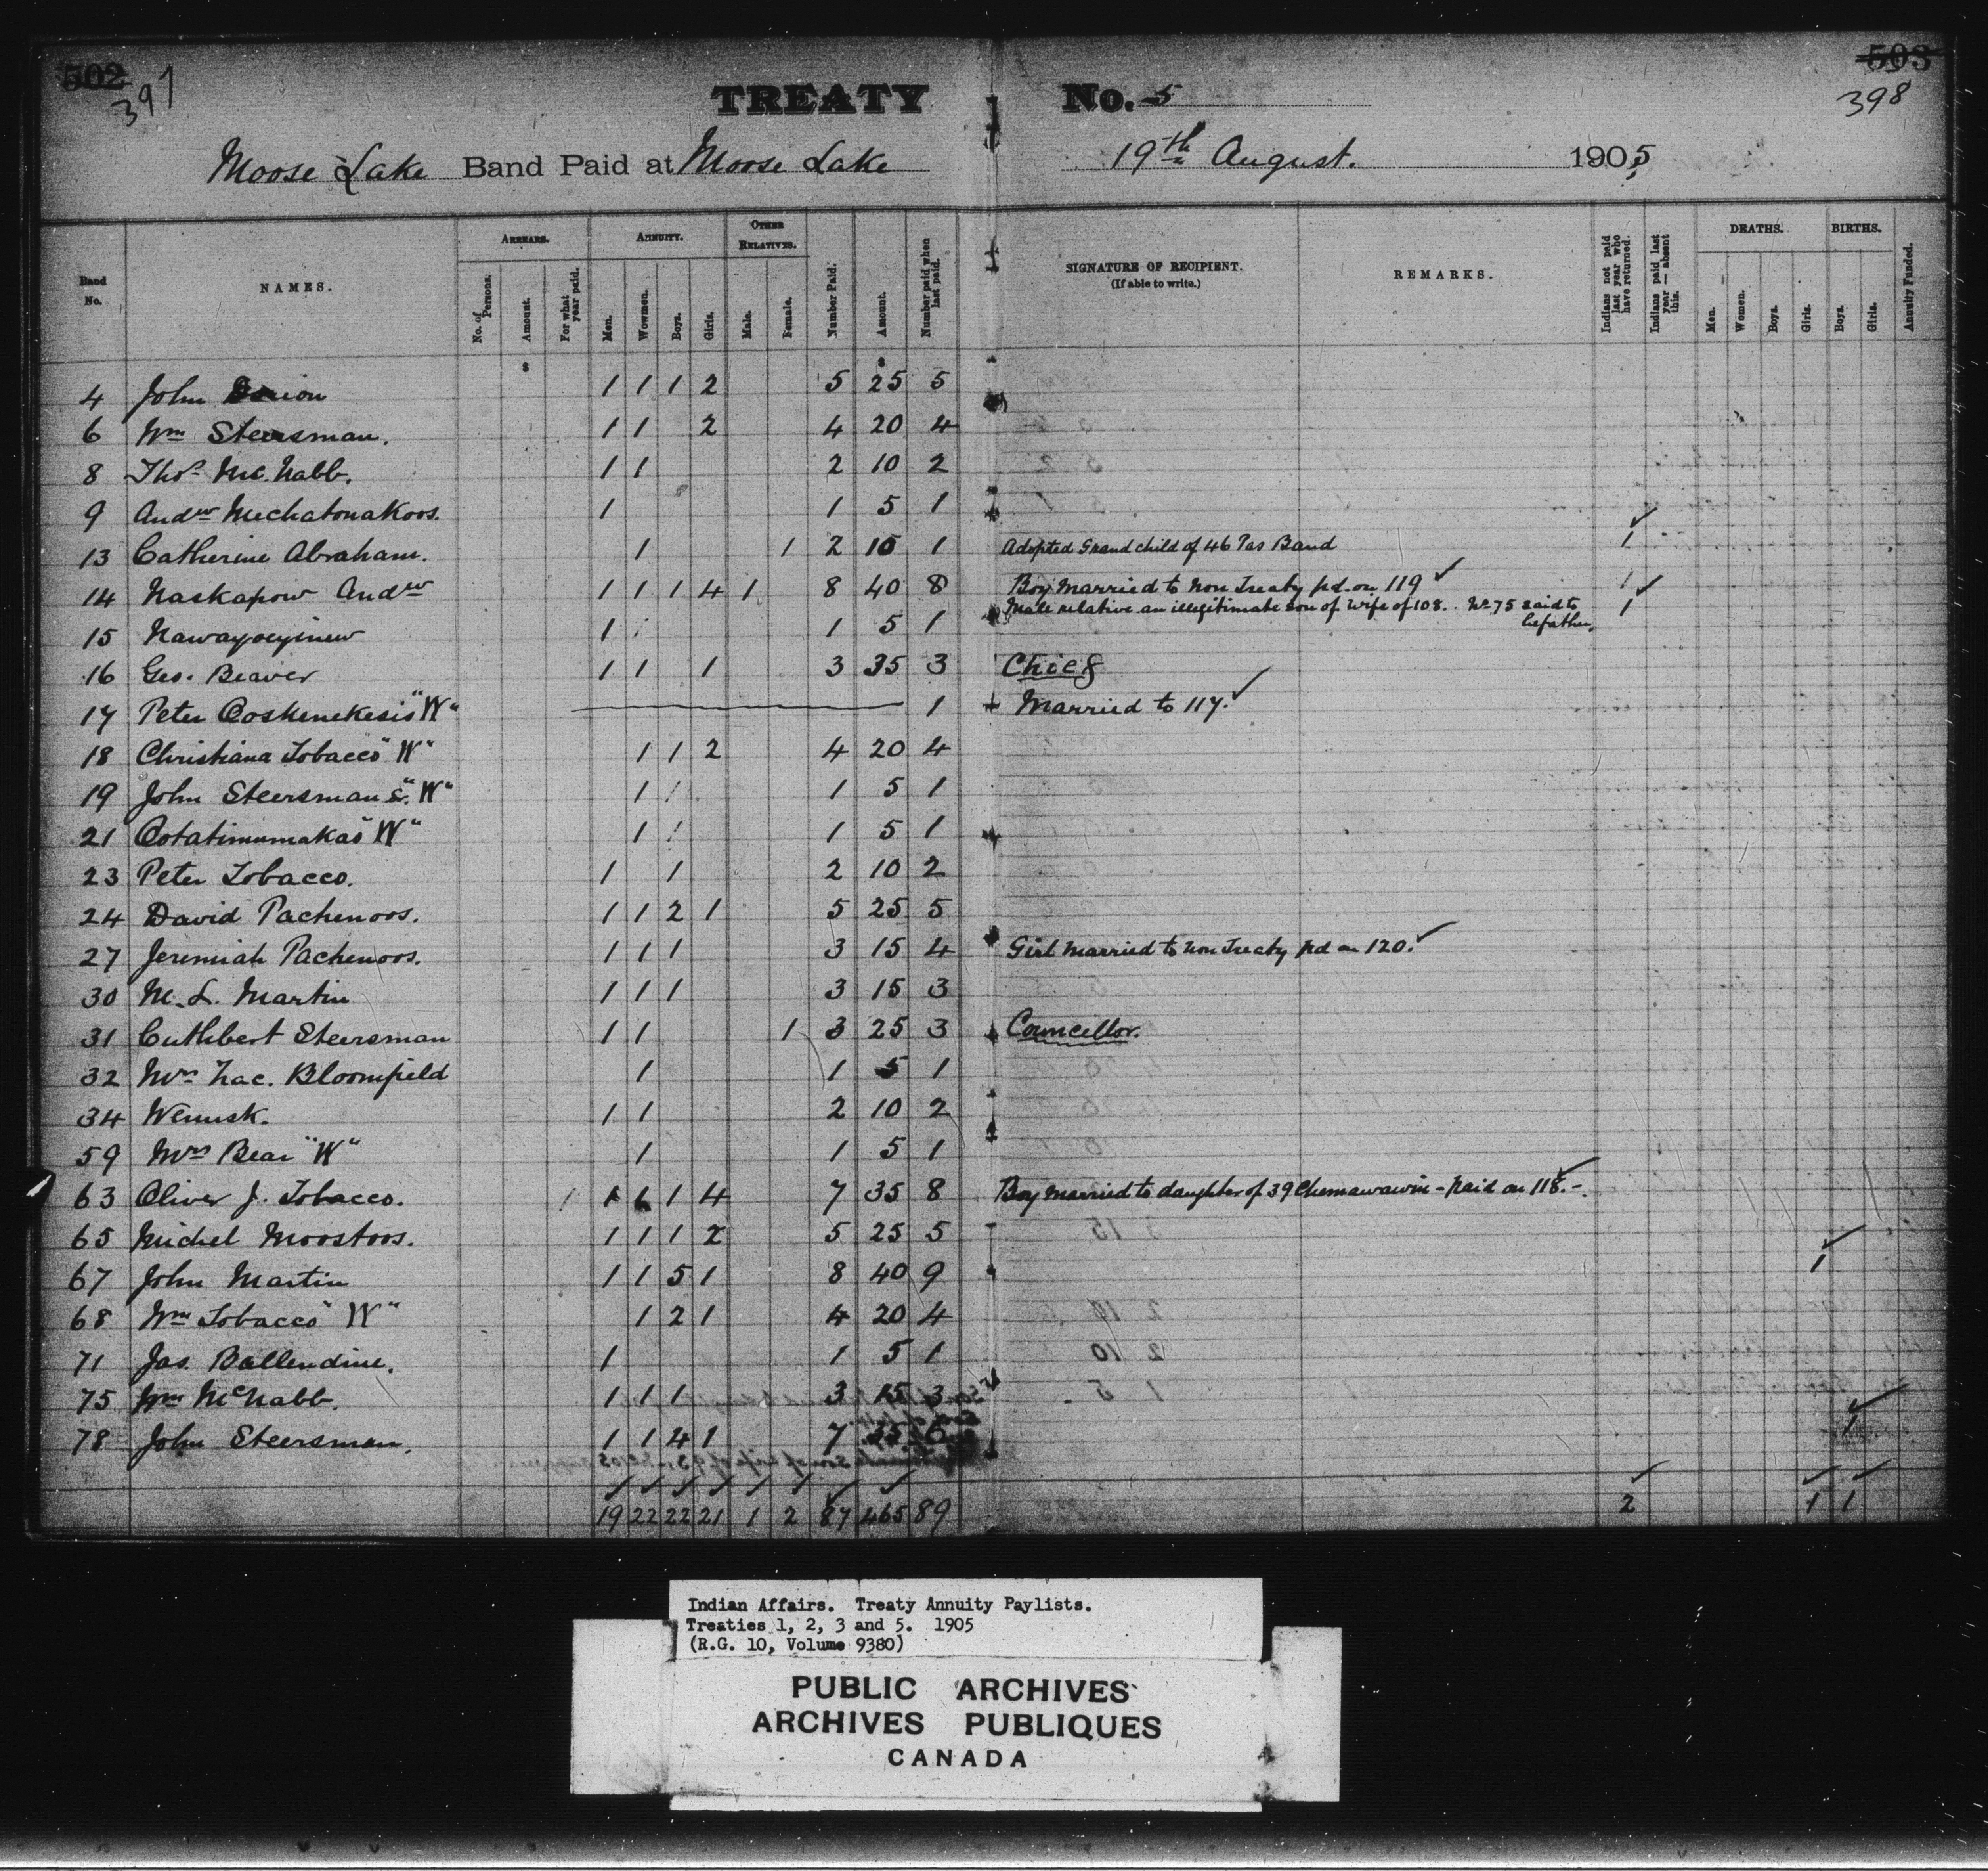 502 397
503
398
TREATY No. 5
Moose Lake Band Paid at Moose Lake 19th August. 1905
Band No. NAMES. ARREARS. ANNUITY. OTHER RELATIVES. Number Paid. Amount. Number paid when last paid. SIGNATURE OF RECIPIENT. (If able to write.) REMARKS. Indians not paid last year who have returned. Indians paid last year — absent this. DEATHS. BIRTHS. Annuity Funded.
No. of Persons. Amount. For what year paid. Men. Wowmen. Boys. Girls. Male. Female. Men. Women. Boys. Girls. Boys. Girls.
$ $
4 John 1 1 1 2 5 25 5
6 Wm Steersman. 1 1 2 4 20 4
8 Thos Mc.Nabb. 1 1 2 10 2
9 Andw Mechatonakoos. 1 1 5 1
13 Catherine Abraham. 1 1 2 10 1 Adopted Grand child of 46 Pas Band 1
14 Naskapow Andw 1 1 1 4 1 8 40 8 Boy Married to Non Treaty pd. on 119 1
Male relative an illegitimate son of wife of 108. No 75 said to be father. 1
15 Nawayoeyinew 1 1 5 1
16 Geo. Beaver 1 1 1 3 35 3 Chief
17 Peter Ooskenekesis "W" 1 Married to 117.
18 Christiana Tobacco "W" 1 1 2 4 20 4
19 John Steersman S. "W" 1 1 5 1
21 Ootatimumakas "W" 1 1 5 1
23 Peter Tobacco. 1 1 2 10 2
24 David Pachenoos. 1 1 2 1 5 25 5
27 Jeremiah Pachenoos. 1 1 1 3 15 4 Girl Married to Non Treaty pd on 120.
30 M. L. Martin 1 1 1 3 15 3
31 Cuthbert Steersman 1 1 1 3 25 3 Councellor.
32 Mrs Zac. Bloomfield 1 1 5 1
34 Wemusk. 1 1 2 10 2
59 Mrs Bear "W" 1 1 5 1
63 Oliver J. Tobacco. 1 1 1 4 7 35 8 Boy Married to daughter of 39 Chemawawin – paid on 118. –.
65 Michel Moostoos. 1 1 1 2 5 25 5
67 John Martin 1 1 5 1 8 40 9 1
68 Wm Tobacco "W" 1 2 1 4 20 4
71 Jas. Ballendine. 1 1 5 1
75 Wm McNabb. 1 1 1 3 15 3
78 John Steersman. 1 1 4 1 7 35 6 1
19 22 22 21 1 2 87 465 89 2 1 1
Indian Affairs. Treaty Annuity Paylists.
Treaties 1, 2, 3 and 5. 1905
(R.G. 10, Volume 9380)
PUBLIC ARCHIVES
ARCHIVES PUBLIQUES
CANADA